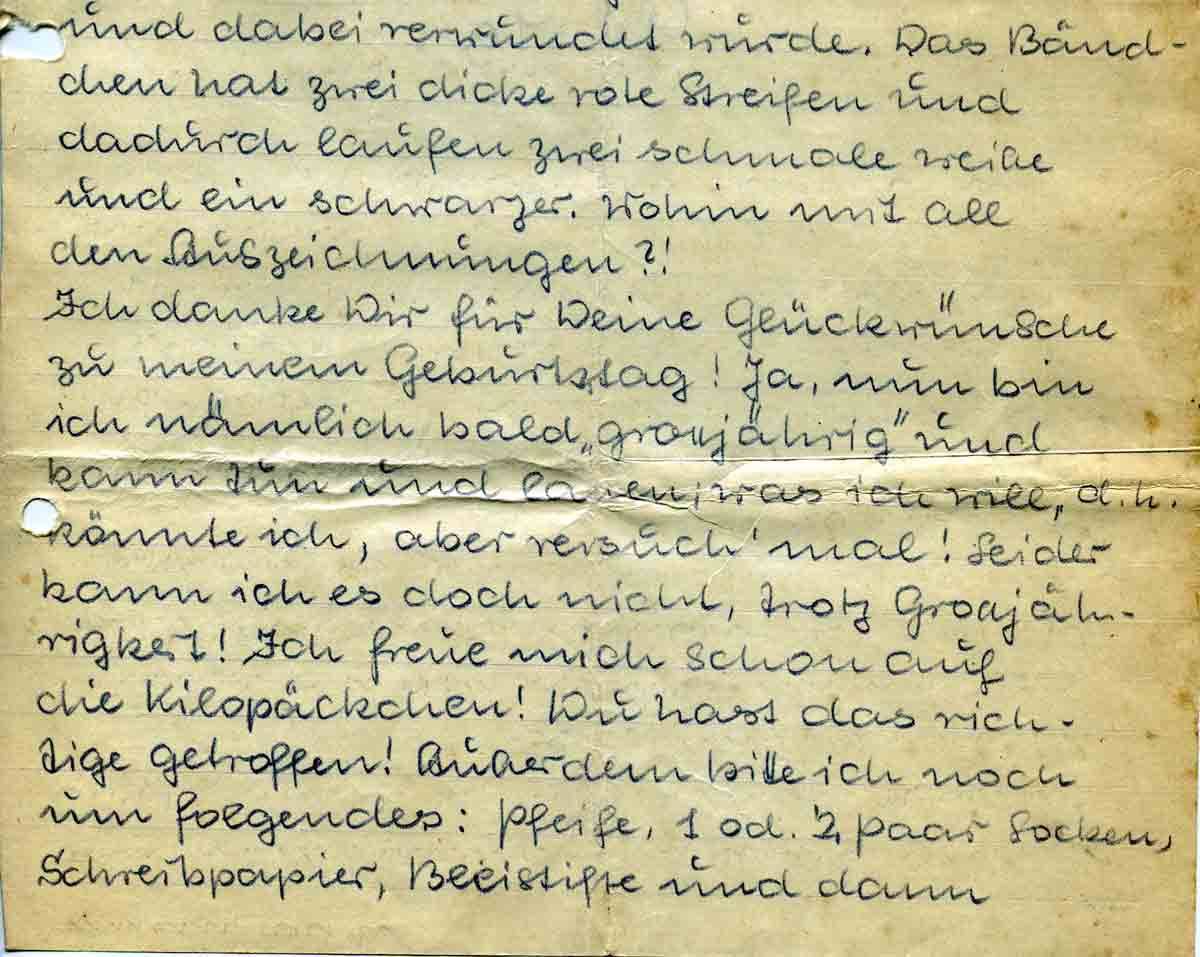 und dabei verwundet wurde. Das Bänd-
chen hat zwei dicke rote Streifen und
dadurch laufen zwei schmale weiße
und ein schwarzer. Wohin mit all
den Auszeichnungen?!
Ich danke Dir für Deine Glückwünsche
zu meinem Geburtstag! Ja, nun bin
ich nämlich bald „großjährig" und
kann tun und lassen, was ich will, d.h.
könnte ich, aber versuch' mal! Leider
kann ich es doch nicht, trotz Großjäh-
rigkeit! Ich freue mich schon auf
die Kilopäckchen! Du hast das rich-
tige getroffen! Außerdem bitte ich noch
um folgendes: Pfeife, 1 od. 2 Paar Socken,
Schreibpapier, Bleistifte und dann